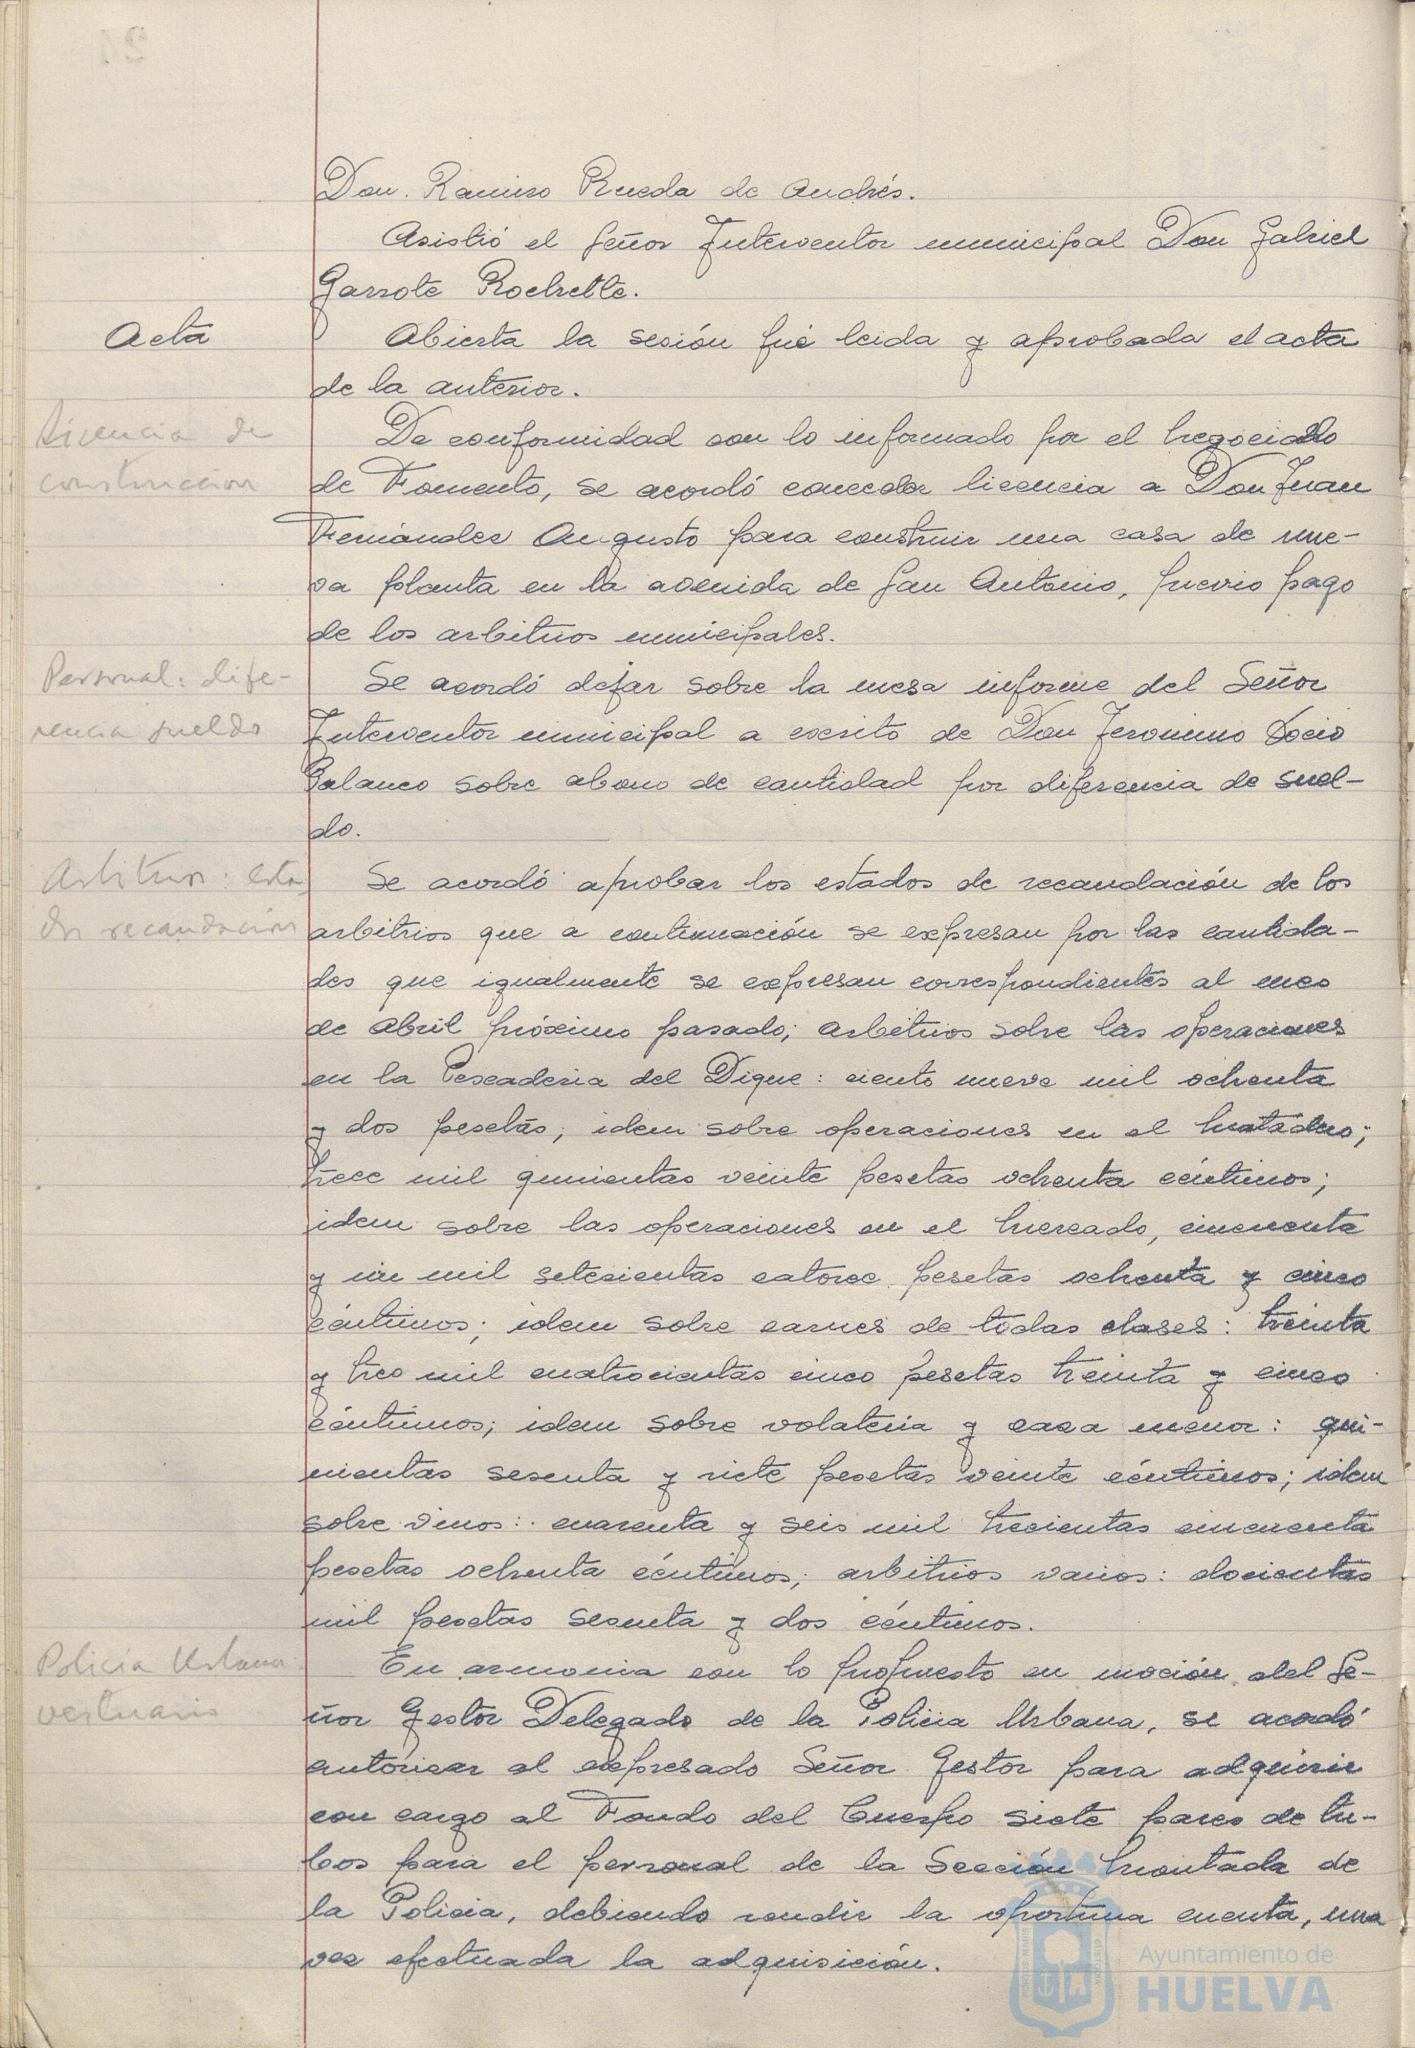 Don. Ramiro Rueda de Andrés.
Asistió el Señor Interventor municipal Don Gabriel
Garrote Rochette.
Acta
Abierta la sesión fué leida y aprobada el acta
de la anterior.
Licencia de
construccion
De conformidad con lo informado por el Negociado
de Fomento, se acordó conceder licencia a Don Juan
Fernández Augusto para construir una casa de nue-
va planta en la avenida de San Antonio, previo pago
de los arbitrios municipales.
Personal: dife-
rencia sueldo
Se acordó dejar sobre la mesa informe del Señor
Interventor municipal a escrito de Don Jeronimo Socio
Palanco sobre abono de cantidad por diferencia de suel-
do.
Arbitrios: esta
dos recaudación
Se acordó aprobar los estados de recaudación de los
arbitrios que a continuación se expresan por las cantida-
des que igualmente se expresan correspondientes al mes
de Abril próximo pasado; arbitrios sobre las operaciones
en la Pescaderia del Dique: ciento nueve mil ochenta
y dos pesetas; idem sobre operaciones en el Matadero;
trece mil quinientas veinte pesetas ochenta céntimos;
idem sobre las operaciones en el Mercado, cincuenta
y un mil setecientas catorce pesetas ochenta y cinco
céntimos; idem sobre carnes de todas clases: treinta
y tres mil cuatrocientas cinco pesetas treinta y cinco
céntimos; idem sobre volateria y caza menor: qui-
nientas sesenta y siete pesetas veinte céntimos; idem
sobre vinos: cuarenta y seis mil trecientas cincuenta
pesetas ochenta céntimos; arbitrios varios: docientas
mil pesetas sesenta y dos céntimos.
Policia Urbana
vestuario
En armonia con lo propuesto en moción del Se-
ñor Gestor Delegado de la Policia Urbana, se acordó
autorizar al expresado Señor Gestor para adquirir
con cargo al Fondo del Cuerpo siete pares de tu-
bos para el personal de la Sección Montada de
la Policia, debiendo rendir la oportuna cuenta, una
vez efectuada la adquisición.
Ayuntamiento de
HUELVA